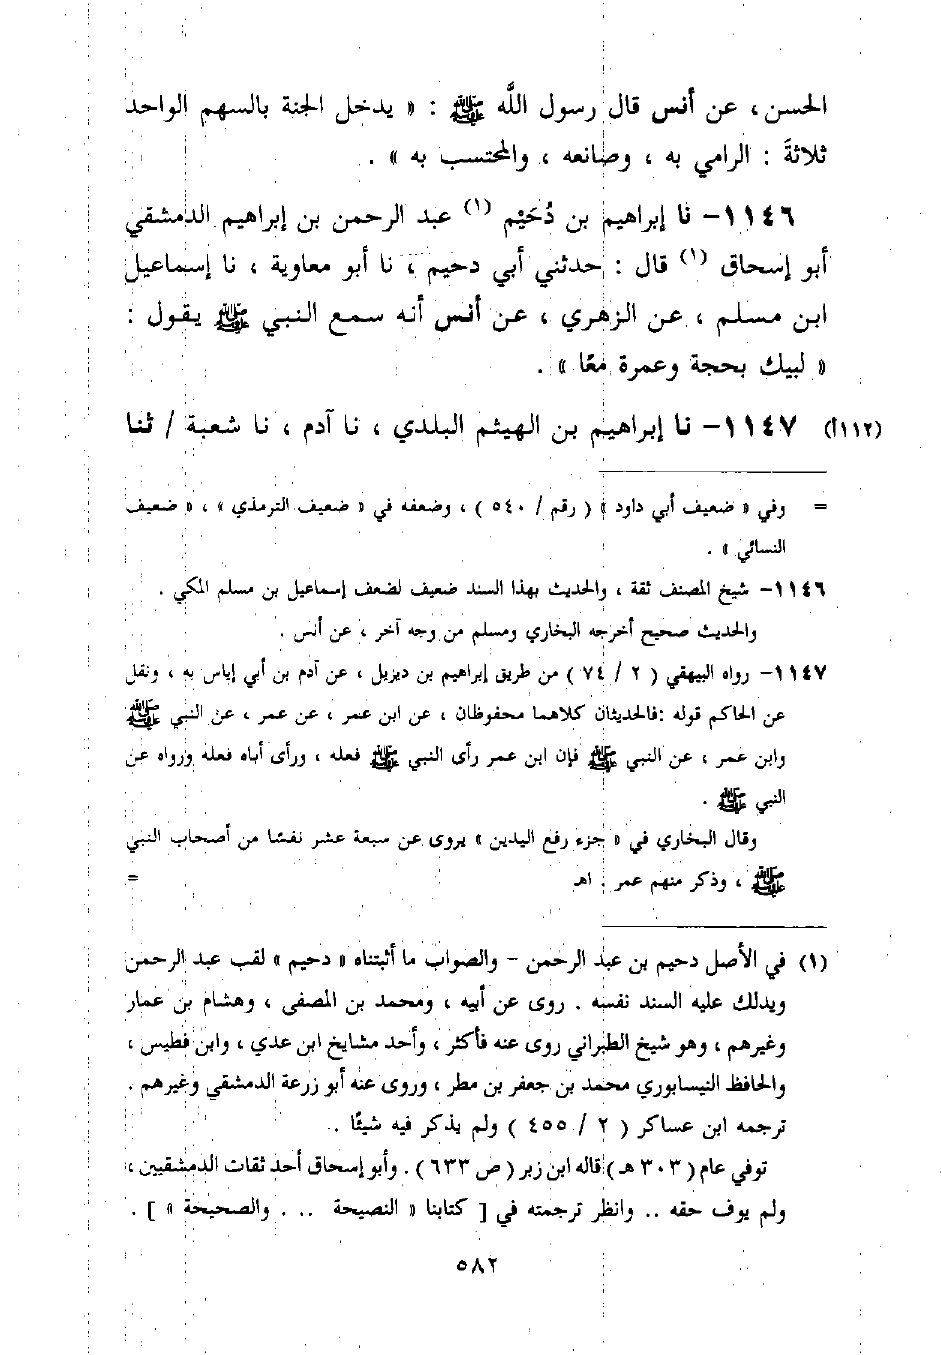 الحسن، عن أنس قال رسول اللَّه ﷺ : « يدخل الجنة بالسهم الواحد
ثلاثةَ : الرامي به ، وصانعه ، والمحتسب به » .
١١٤٦- نا إبراهيم بن دُحَيْم (١) عبد الرحمن بن إبراهيم الدمشقي
أبو إسحاق (١) قال : حدثني أبي دحيم ، نا أبو معاوية ، نا إسماعيل
ابن مسلم ، عن الزهري ، عن أنس أنه سمع النبي ﷺ يقول :
« لبيك بحجة وعمرة معًا » .
(١١٢أ) ١١٤٧- نا إبراهيم بن الهيثم البلدي ، نا آدم ، نا شعبة / ثنا
= وفي « ضعيف أبي داود » ( رقم / ٥٤٠ ) ، وضعفه في « ضعيف الترمذي » ، « ضعيف
النسائي » .
١١٤٦- شيخ المصنف ثقة ، والحديث بهذا السند ضعيف لضعف إسماعيل بن مسلم المكي .
والحديث صحيح أخرجه البخاري ومسلم من وجه آخر ، عن أنس .
١١٤٧- رواه البيهقي ( ٢ / ٧٤ ) من طريق إبراهيم بن ديزيل ، عن آدم بن أبي إياس به ، ونقل
عن الحاكم قوله :فالحديثان كلاهما محفوظان ، عن ابن عمر ، عن عمر ، عن النبي ﷺ
وابن عمر ، عن النبي ﷺ فإن ابن عمر رأى النبي ﷺ فعله ، ورأى أباه فعله ورواه عن
النبي ﷺ .
وقال البخاري في « جزء رفع اليدين » يروى عن سبعة عشر نفسًا من أصحاب النبي
ﷺ ، وذكر منهم عمر . اهـ =
(١) في الأصل دحيم بن عبد الرحمن - والصواب ما أثبتناه « دحيم » لقب عبد الرحمن
ويدلك عليه السند نفسه . روى عن أبيه ، ومحمد بن المصفى ، وهشام بن عمار
وغيرهم ، وهو شيخ الطبراني روى عنه فأكثر ، وأحد مشايخ ابن عدي ، وابن فطيس ،
والحافظ النيسابوري محمد بن جعفر بن مطر ، وروى عنه أبو زرعة الدمشقي وغيرهم .
ترجمه ابن عساكر ( ٢ / ٤٥٥ ) ولم يذكر فيه شيئًا .
توفي عام ( ٣٠٣ هـ ) قاله ابن زبر ( ص ٦٣٣ ) . وأبو إسحاق أحد ثقات الدمشقيين ،
ولم يوف حقه .. وانظر ترجمته في [ كتابنا « النصيحة .. . والصحيحة » ] .
٥٨٢